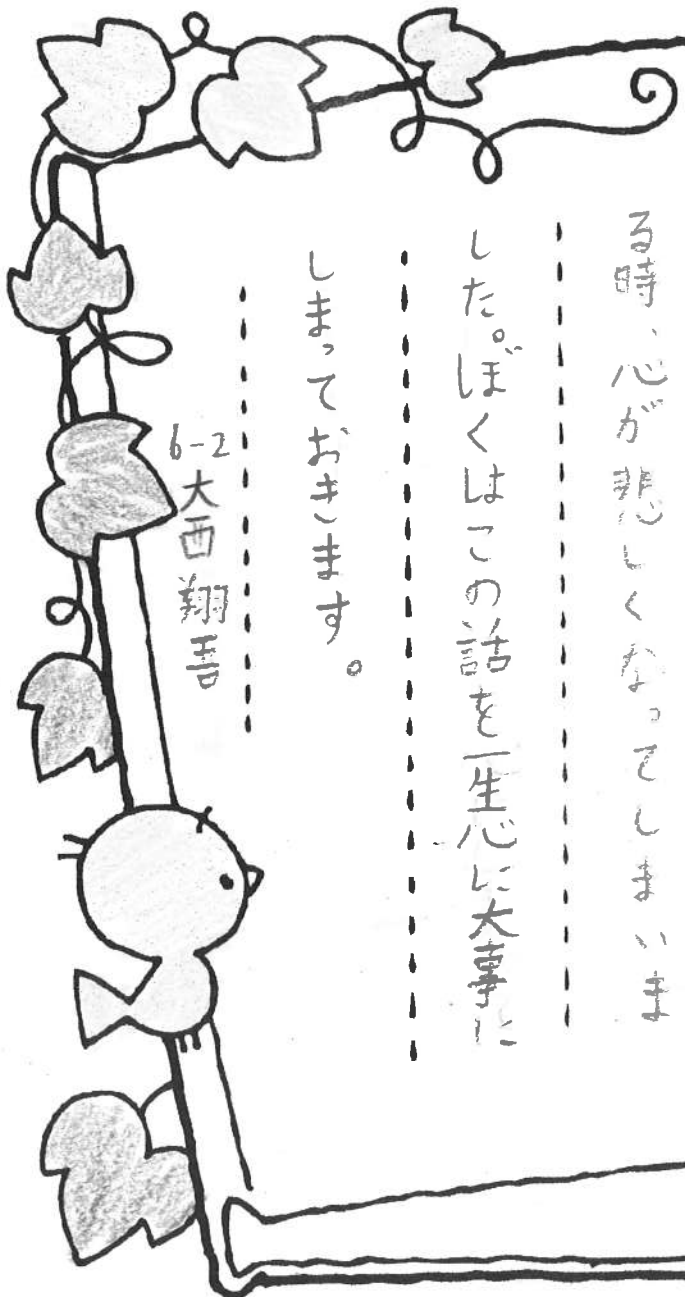 る時、心が悲しくなってしまいま
した。ぼくはこの話を一生心に大事に
しまっておきます。
6-2 大西 翔吾